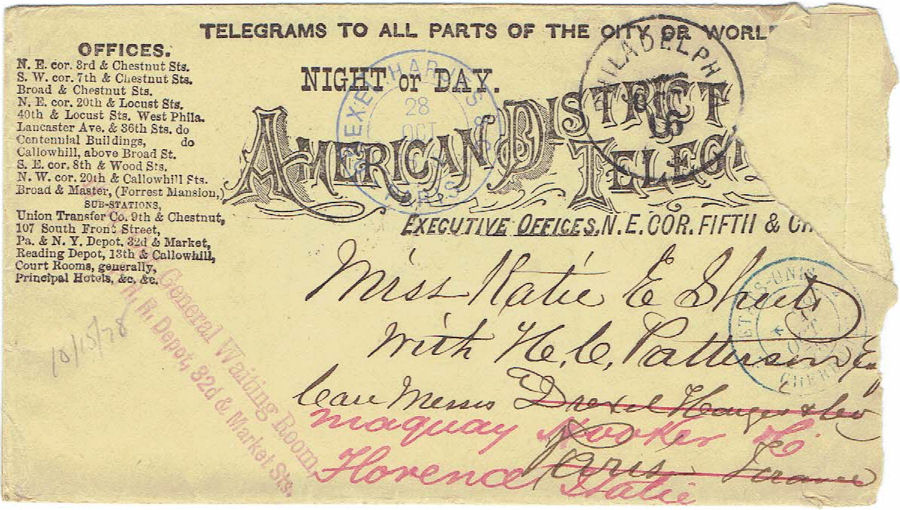 TELEGRAMS TO ALL PARTS OF THE CITY OR WORL
OFFICES.
N. E. cor. 3rd & Chestnut Sts.
S. W. cor. 7th & Chestnut Sts.
Broad & Chestnut Sts.
N. E. cor. 20th & Locust Sts.
40th & Locust Sts. West Phila.
Lancaster Ave. & 36th Sts. do
Centennial Buildings, do
Callowhill, above Broad St.
S. E. cor. 8th & Wood Sts.
N. W. cor. 20th & Callowhill Sts.
Broad & Master, (Forrest Mansion,)
SUB-STATIONS,
Union Transfer Co. 9th & Chestnut,
107 South Front Street,
Pa. & N. Y. Depot, 32d & Market,
Reading Depot, 13th & Callowhill,
Court Rooms, generally,
Principal Hotels, &c. &c.
NIGHT or DAY.
AMERICAN DISTRICT
TELEG
EXECUTIVE OFFICES, N. E. COR. FIFTH & CH
PHILADELPH
DREXEL HARJES & CO
28
OCT
PARIS
ETATS-UNIS
OCT
CHERB
General Waiting Room,
R. Depot, 32d & Market Sts.
10/15/78
Miss Katie E Sheets
With H. C. Patterson Esq
Care Messrs Drexel Harjes & Co
Maquay Hooker &C.
Paris France
Florence Italie